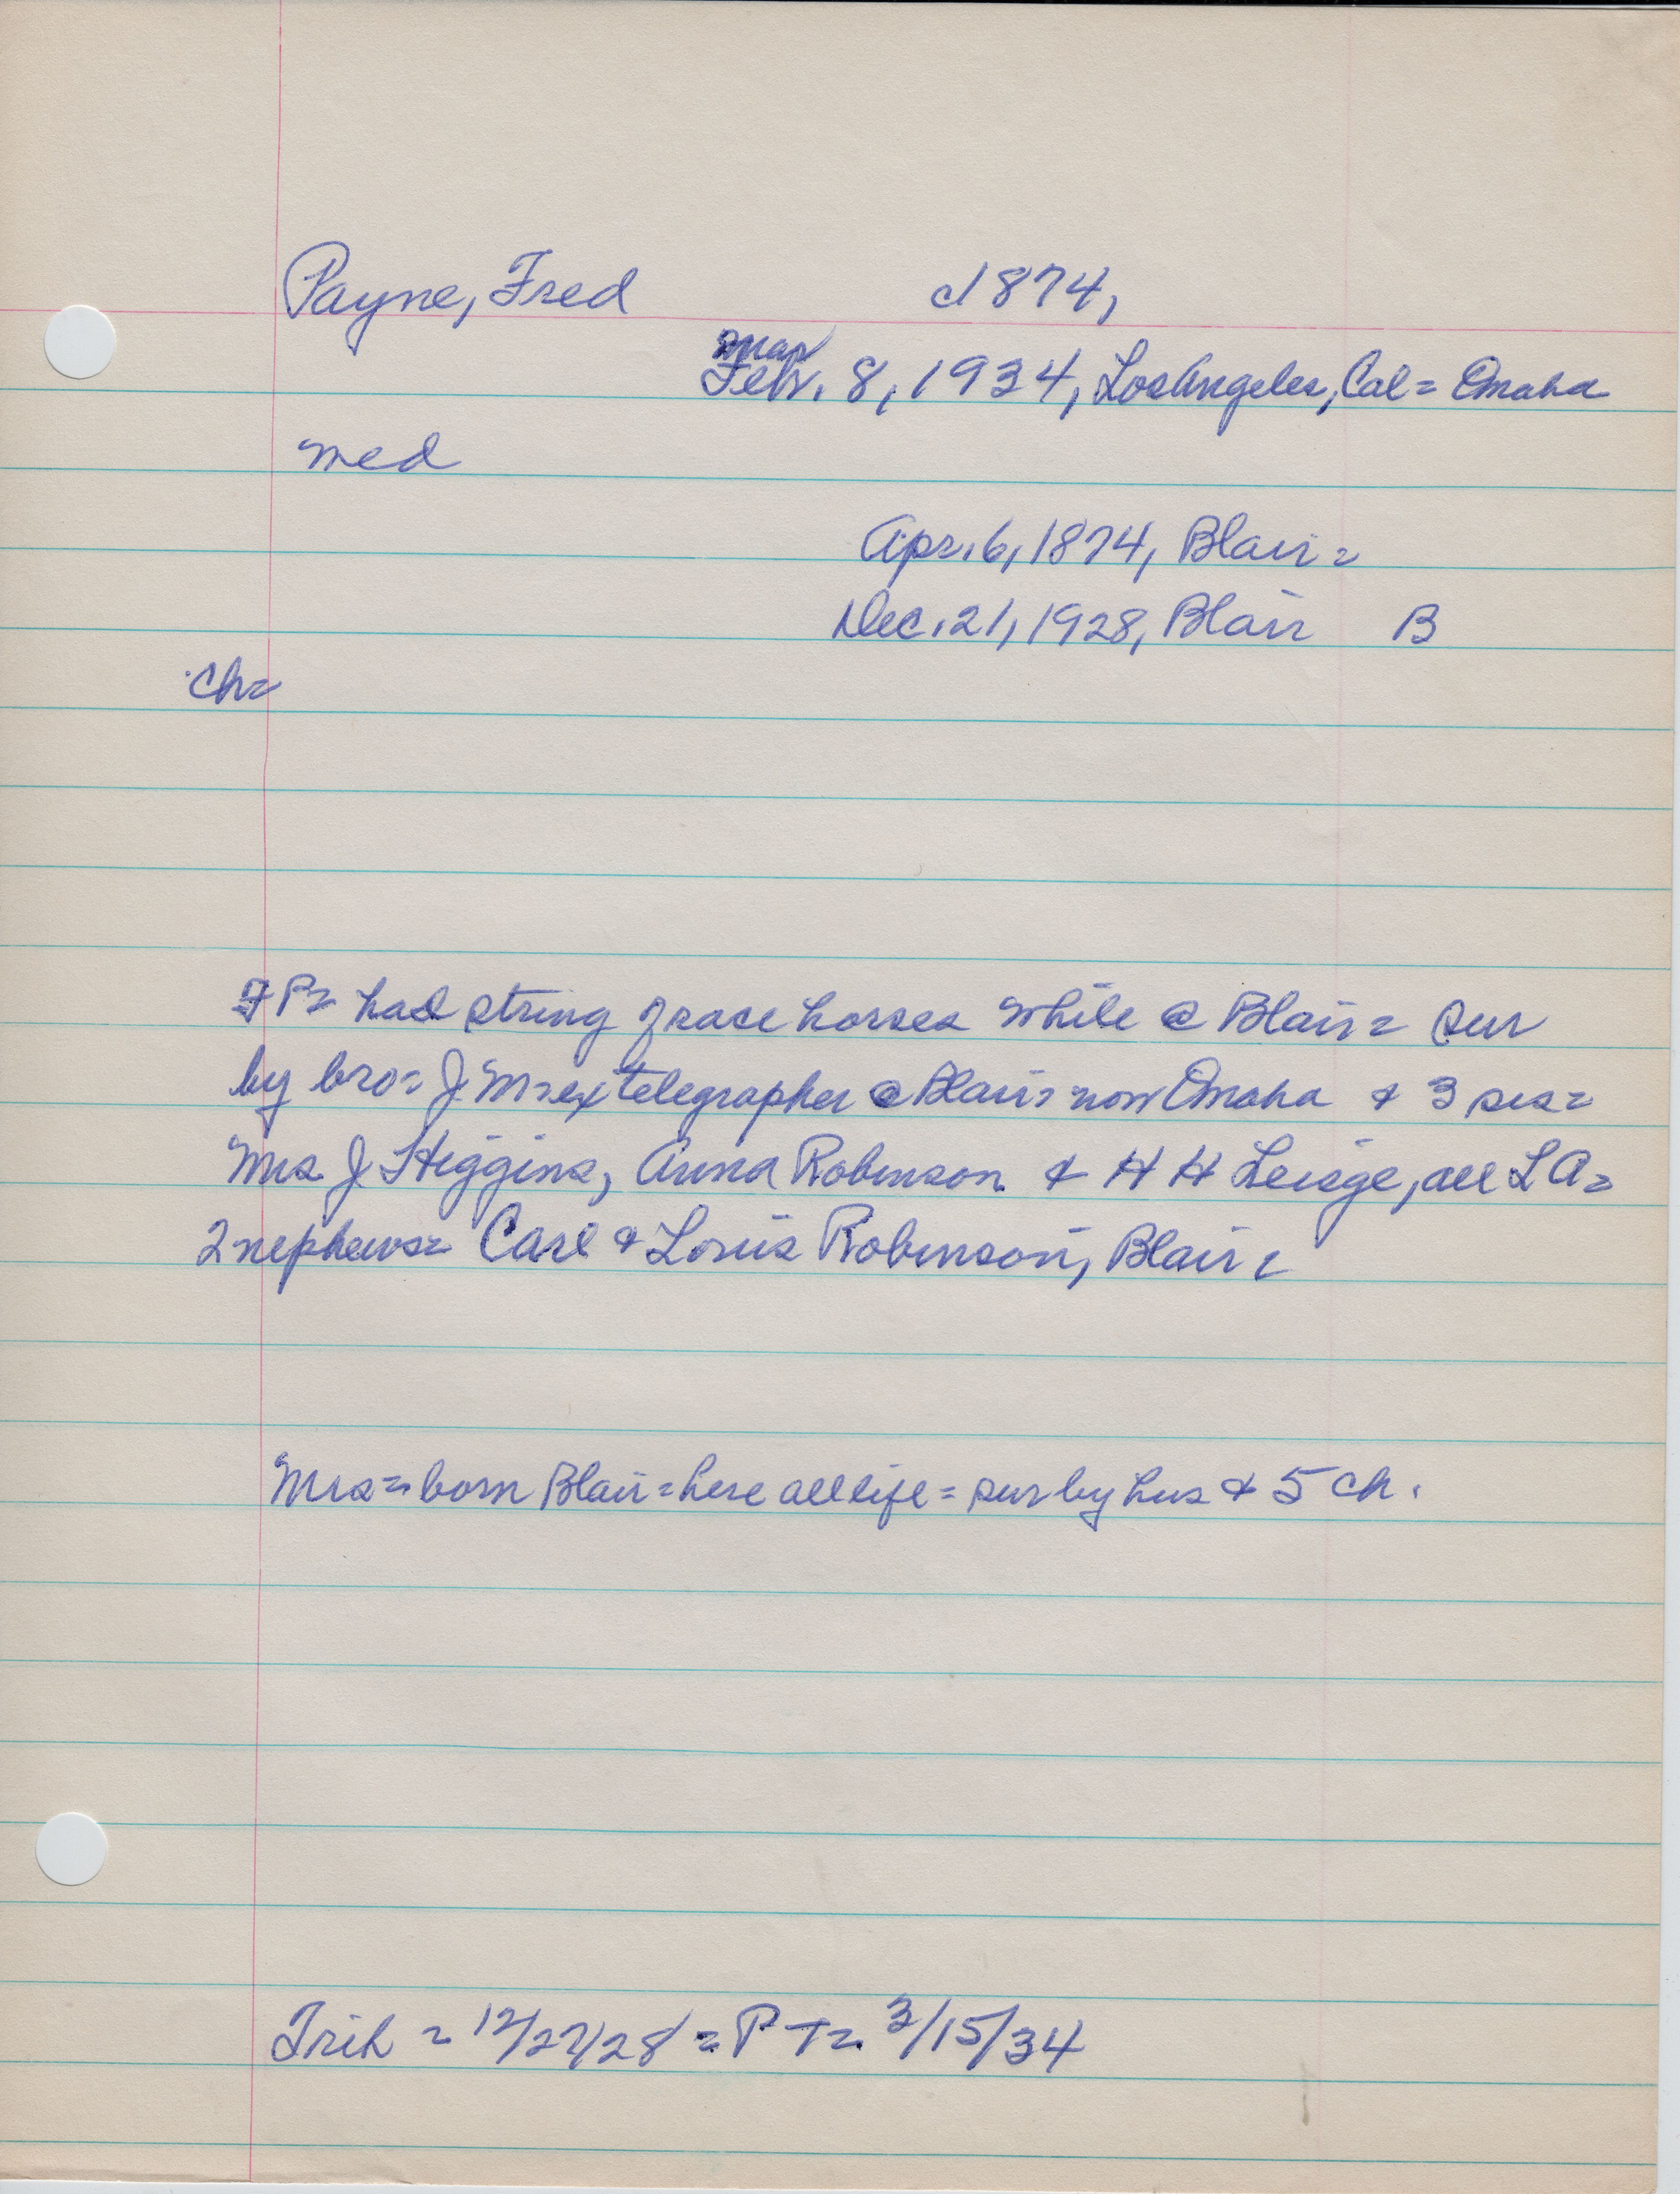 Payne, Fred c1874,
Mar
Feb. 8, 1934, Los Angeles, Cal = Omaha
med
Apr. 6, 1874, Blair =
Dec. 21, 1928, Blair B
Ch=
F P= had string of race horses while @ Blair = sur
by bro= J M= ex telegrapher @ Blair= now Omaha & 3 sis=
Mrs J Higgins, Anna Robinson & H H Leisge, all L A=
2 nephews= Carl & Louis Robinson, Blair
Mrs = born Blair = here all life = sur by hus & 5 ch.
Trib = 12/27/28 = P T = 3/15/34